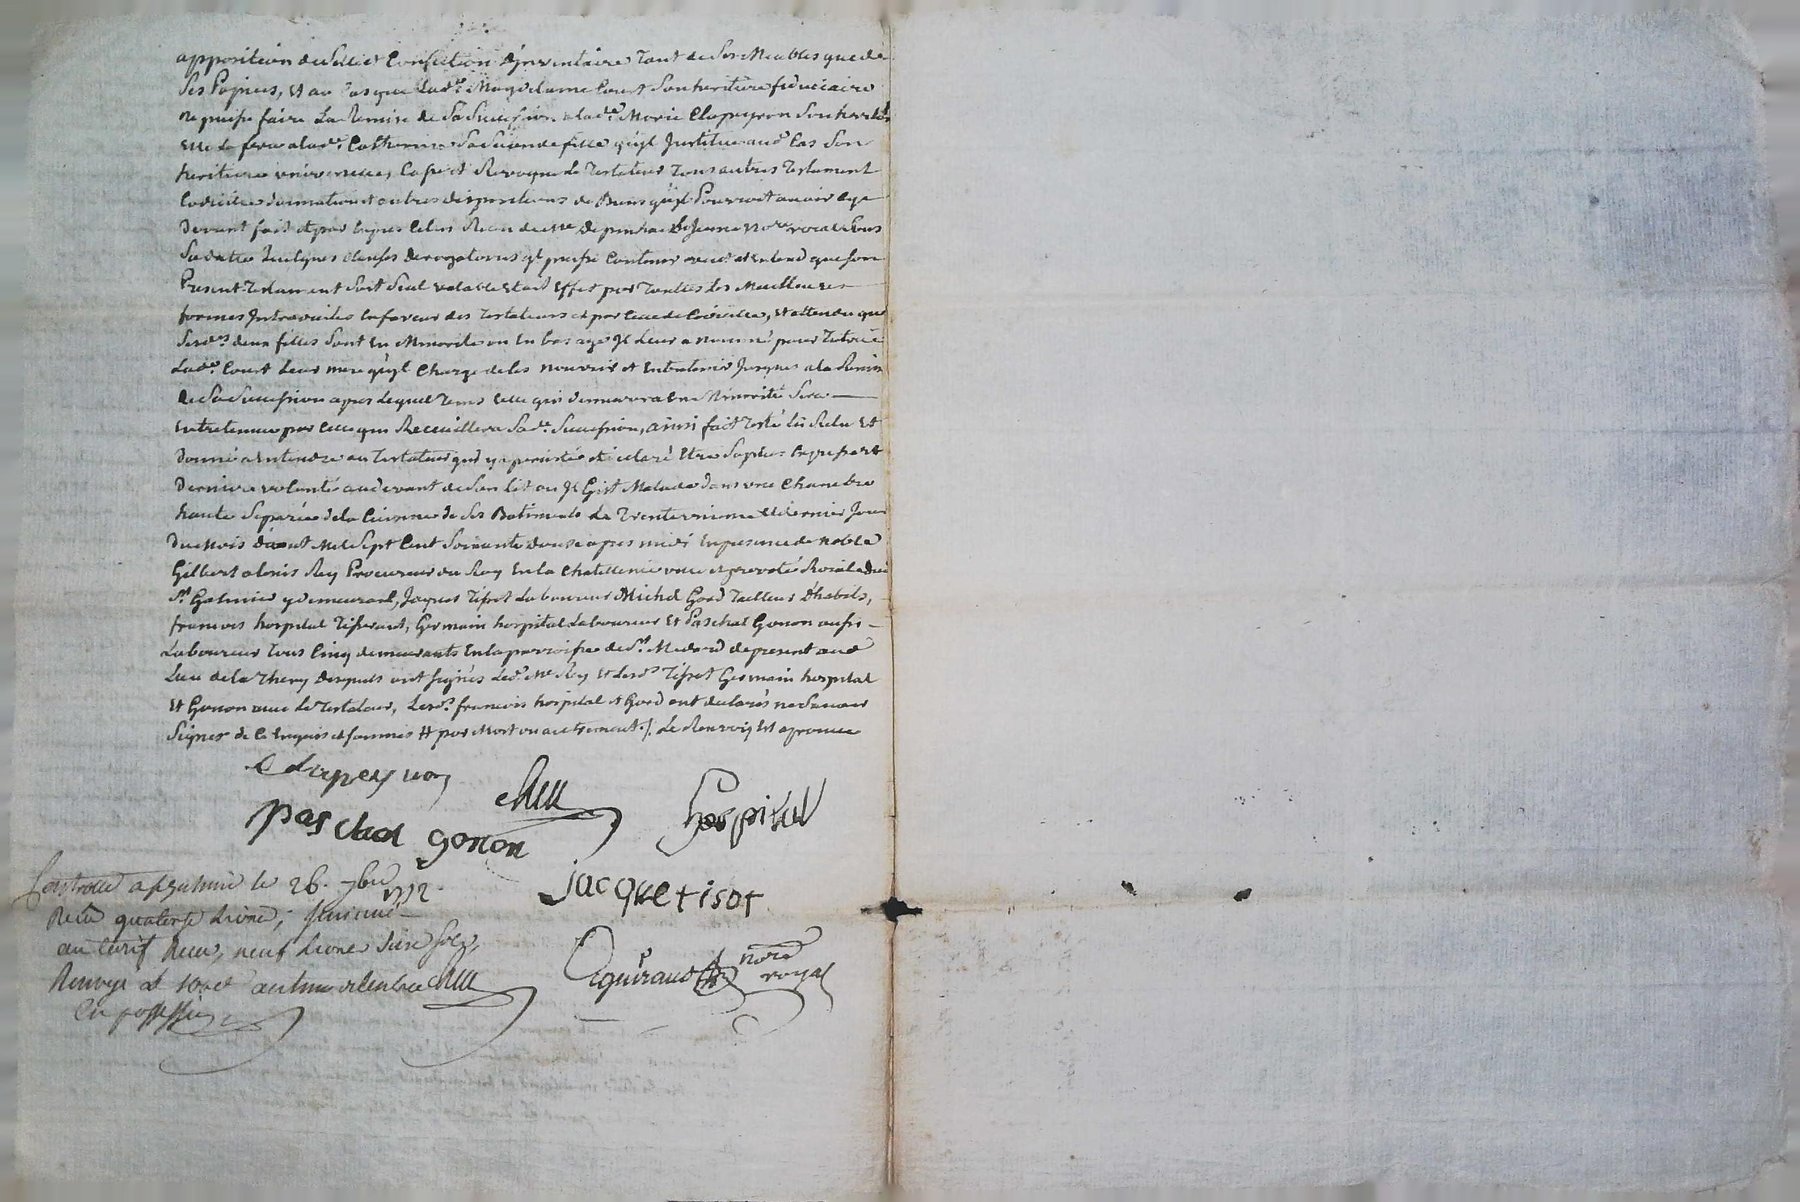 apposition du Sellé et Confection d'jnventaire tant de Ses Meubles que de
Ses Papiers, et au Cas que Lad.e Magdelaine Court Son heritiere fiduciaire
ne puisse faire La Remise de Sa Succession a lad.te Marie Clapeyron Son herit.re
elle La fera a lad.e Catherine Sa Seconde fille qu'yl Institue aud. Cas Son
heritiere universelle, Casse et Revoque Le Testateur tous autres Testament
Codicilles donnations et autres dispositions de Biens qu'yl Pourroit avoir cy
devant fait
Quelques clauses derogatoires q'l puisse Contenir veut et entend que son
Present Testament Soit Seul valable et ait Effet par toutes les Meilleures
formes Introduites en faveur des Testateurs et par Celle de Codicille, et attendu que
Sesd.es deux filles Sont en Minorité ou en bas age Il Leur a nommé pour Tutrice
Lad.e Court Leur mere qu'yl Charge de les nourrir et entretenir Jusques a la Remise
de Sa Succession apres Lequel tems celle qui demeurera en Minorité Sera
entretenue par Celle qui Recueillera Sad.e Succession, ainsi fait testé lû Relu et
donné a entendre au Testateur qui y a persisté et declaré etre Sa
derniere volonté au devant de Son Lit ou Jl Gist Malade dans une Chambre
haute Separée de la Cuisine de Ses Batiments Le Trente unieme et dernier Jour
du Mois d'aout Mil Sept Cent Soixante douse apres midi en presence de noble
Gilbert alexis Rey Procureur du Roy en la Chatellenie ville et prevoté Roiale de
S.t Galmier y demeurant, Jaques Tissot Laboureur Michel Gord Tailleur d'habits,
francois hospital Tisserant, Germain hospital Laboureur et Paschal Gonon aussi
Laboureur tous Cinq demeurants en la parroisse de S.t Medard de present aud.
Lieu de la Thery desquels ont signés Led. M.e Rey et Lesd.s Tissot Germain hospital
et Gonon avec Le Testateur, Lesd.s francois hospital et Gord ont declarés ne Savoir
Signer de Ce enquis et sommés # par Mort ou autrement./. Le Renvoy est aprouvé
Clapeyron
Rey
hospital
paschal gonon
jacque tisot
Controllé a S.t galmier le 26. 7bre 1772.
Reçu quatorse livres; Insinué
au tarif Reçu, neuf livres dix sols,
Renvoyé
Rey
en possession
guiraud
no.re
royal